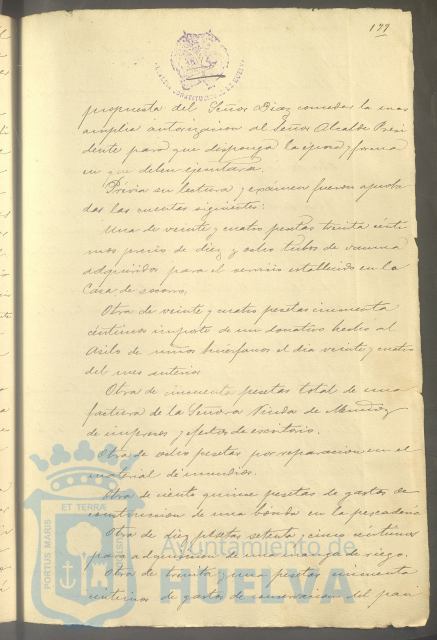 177
propuesta del Señor Diaz conceder la mas
amplia autorizacion al Señor Alcalde Presi
dente para que disponga la epoca y forma
en que deben ejecutarse.
Prévia su lectura y exámen fueron aproba
das las cuentas siguientes:
Una de veinte y cuatro pesetas treinta cénti
mos precio de diez y ocho tubos de vacuna
adquiridos para el servicio establecido en la
Casa de socorro.
Otra de veinte y cuatro pesetas cincuenta
céntimos importe de un donativo hecho al
Asilo de niños huérfanos el dia veinte y cuatro
del mes anterior
Otra de cincuenta pesetas total de una
factura de la Señora Viuda de Muñoz
de impresos y efectos de escritorio.
Otra de ocho pesetas por reparacion en el
material de incendios.
Otra de ciento quince pesetas de gastos de
construccion de una en la pescaderia
Otra de diez pesetas setenta y cinco céntimos
para adquisicion de una manga de riego.
Otra de treinta y una pesetas cincuenta
céntimos de gastos de conservacion del pan
PORTUS MARIS
ET TERRÆ
CUSTODIA
Ayuntamiento de
HUELVA